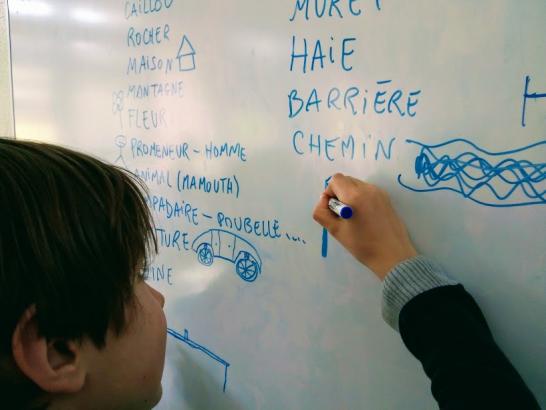 CAILLOU
ROCHER
MAISON
MONTAGNE
FLEUR
PROMENEUR - HOMME
ANIMAL (MAMOUTH)
APADAIRE - POUBELLE....
TURE
INE
MURET
HAIE
BARRIÈRE
CHEMIN